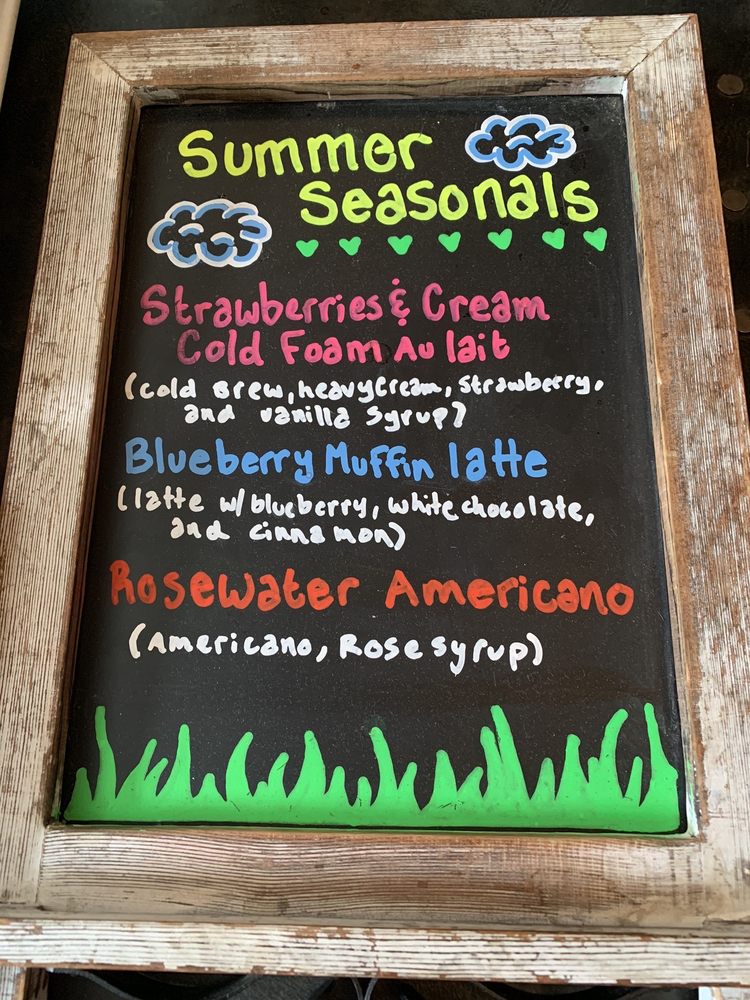 Summer
Seasonals
Strawberries & Cream
Cold Foam Au lait
(Cold Brew, heavy cream, strawberry,
and vanilla syrup)
Blueberry Muffin latte
(latte w/blueberry, white chocolate,
and cinnamon)
Rosewater Americano
(Americano, Rose syrup)